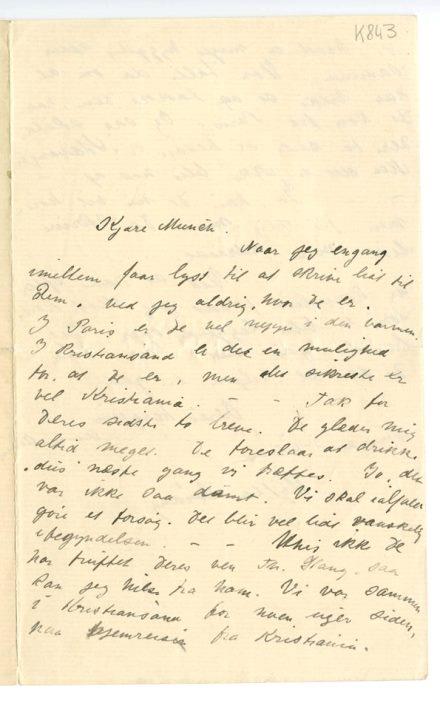 K843
Kjære Munch.
Naar jeg engang
imellem faar lyst til at skrive lidt til
Dem, ved jeg aldrig hvor De er.
I Paris er De vel neppe i den varmen.
I Kristiansand er det en mulighed
for at De er, men det sikreste er
vel Kristiania. — — Tak for
Deres sidste to breve. De glæder mig
altid meget. De foreslaar at drikke
"dus" næste gang vi træffes. Jo, det
var ikke saa dumt. Vi skal ialfald
gøre et forsøg. Det blir vel lidt vanskelig
i begyndelsen. — — Hvis ikke De
har truffet Deres ven Chr. Haug, saa
kan jeg hilse fra ham. Vi var sammen
i Kristiansand for noen uger siden,
paa hjemreise fra Kristiania.